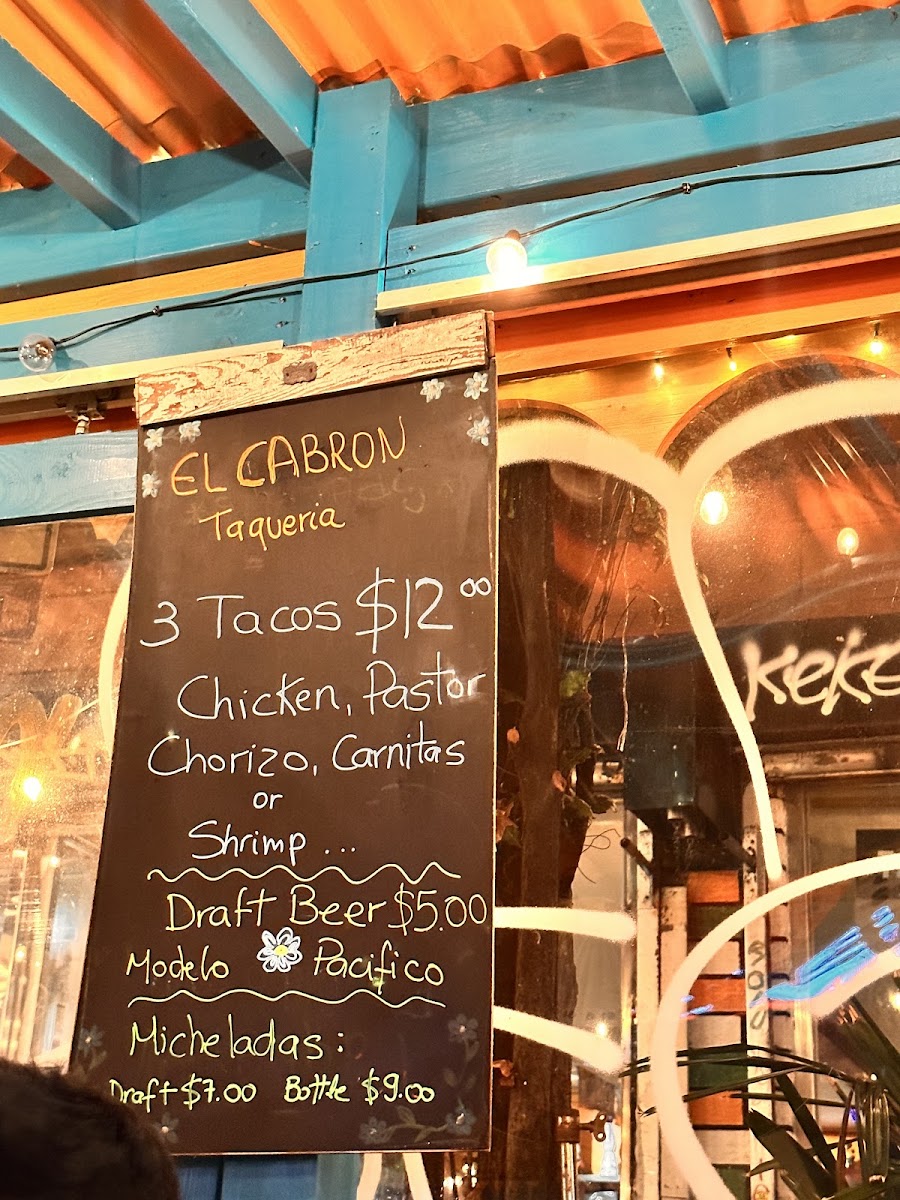 EL CABRON
Taqueria
3 Tacos $12.00
Chicken, Pastor
Chorizo, Carnitas
or
Shrimp ...
Draft Beer $5.00
Modelo Pacifico
Micheladas:
Draft $7.00 Bottle $9.00